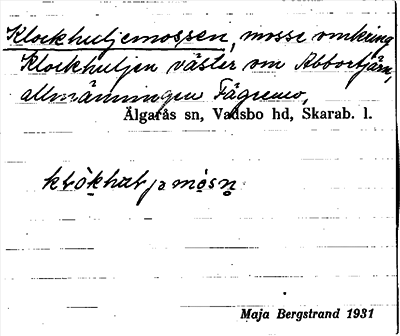 Klockhuljemossen, mosse omkring
Klockhuljen väster om Abbortjärn,
allmänningen Fägremo,
Älgarås sn, Vadsbo hd, Skarab. l.
Maja Bergstrand 1931